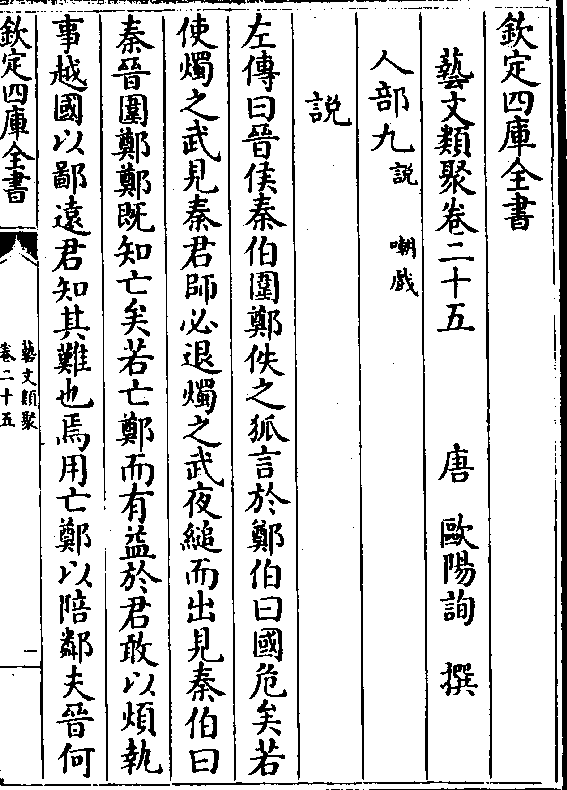 欽定四庫全書
藝文類聚卷二十五　唐　歐陽詢　撰
人部九 說　嘲戲
説
左傳曰晉侯秦伯圍鄭佚之狐言於鄭伯曰國危矣若
使燭之武見秦君師必退燭之武夜縋而出見秦伯曰
秦晉圍鄭鄭既知亡矣若亡鄭而有益於君敢以煩執
事越國以鄙遠君知其難也焉用亡鄭以陪鄰夫晉何
欽定四庫全書
藝文類聚
卷二十五
一